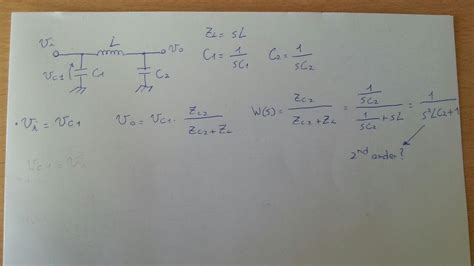 Vi L Vo
VC1 C1 C2
ZL = sL
C1 = 1/sC1 C2 = 1/sC2
• Vi = VC1 Vo = VC1 · ZC2/(ZC2+ZL) W(s) = ZC2/(ZC2+ZL) = (1/sC2)/(1/sC2+sL) = 1/(s²LC2+1)
2nd order?